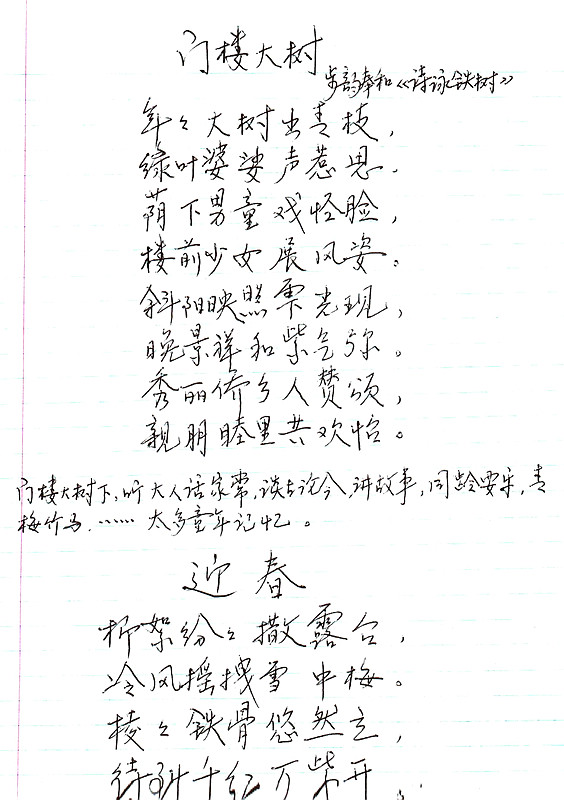 门楼大树
步韵奉和《诗咏铁树》
年々大树出青枝，
绿叶婆娑声惹思。
荫下男童戏怪脸，
楼前少女展风姿。
斜阳映照霞光现，
晚景祥和紫气弥。
秀丽侨乡人赞颂，
亲朋睦里共欢怡。
门楼大树下，听大人话家常，谈古论今，讲故事，同龄耍乐，青
梅竹马，……太多童年记忆。
迎春
柳絮纷々撒露台，
冷风摇拽雪中梅。
棱々铁骨悠然立，
待到千红万紫开。